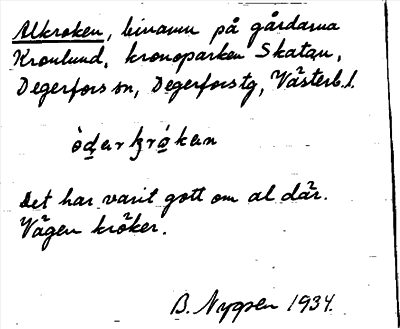 Alkroken, binamn på gårdarna
Kronlund, kronoparken Skatan,
Degerfors sn, Degerforstg, Västerb. l.
Det har varit gott om al där.
Vägen kröker.
B. Nygren 1934.